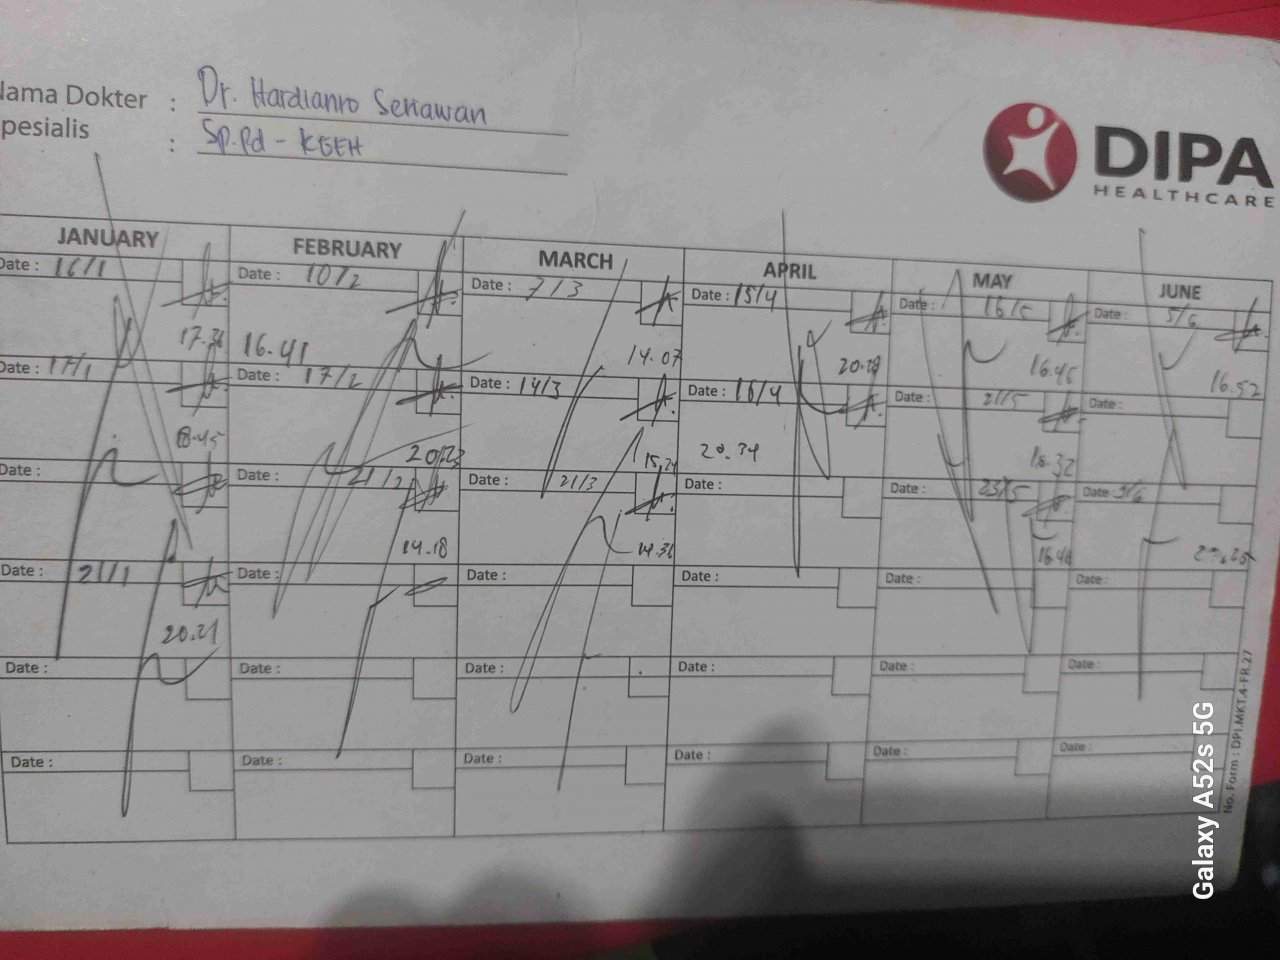 Nama Dokter : Dr. Hardianto Setiawan
Spesialis : Sp.Pd - KGEH
DIPA
HEALTHCARE
JANUARY FEBRUARY MARCH APRIL MAY JUNE
Date : 16/1 Date : 10/2 Date : 7/3 Date : 15/4 Date : 16/5 Date : 5/6
16.41 14.07 20.28 16.45 16.52
Date : 17/1 Date : 17/2 Date : 14/3 Date : 16/4 Date : 21/5 Date :
18.45 20.23 20.34 18.32
Date : Date : 21/2 Date : 21/3 Date : Date : 23/5 Date :
14.18 14.36 16.46
Date : 21/1 Date : Date : Date : Date : Date :
20.21
Date : Date : Date : Date : Date : Date :
Date : Date : Date : Date : Date : Date :
No. Form : DPI.MKT.4-FR.27
Galaxy A52s 5G